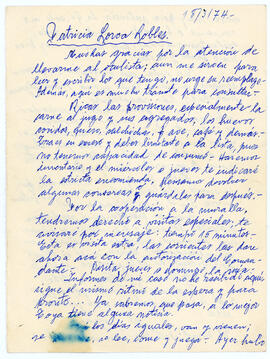 18/3/74.-
Patricia Lorca Robles.
Muchas gracias por la atención de
llevarme al dentista; aun me sirven para
leer y escribir los que tengo, no urge su reemplazo.
Además, aquí es mucho trámite para conseguir.-
Ricas las provisiones, especialmente la
carne al jugo y sus agregados, los huevos
 y
 en enviar y debes limitarte a la lista, pues
no tenemos capacidad de consumo.- Haremos
inventario y el miércoles o jueves te indicaré
la encomienda. Pensamos devolver
algunas conservas q' guardarlas para después.-
Por la cooperación a la
tendremos derecho a visitas especiales, de
avisar por mensaje: tiempo 15 minutos.-
Esta es visita extra, las corrientes las dare
ahora acá con la autorización del Coman-
dante.- jueves o domingo, la
Informe de mi caso no he recibido aquí
sigue el mismo ritmo de la espera y para
pronto... Ya sabremos que pasa, a lo mejor
 tiene alguna noticia.
 los días iguales, van y vienen;
se lee, come y juega.- Ayer hubo